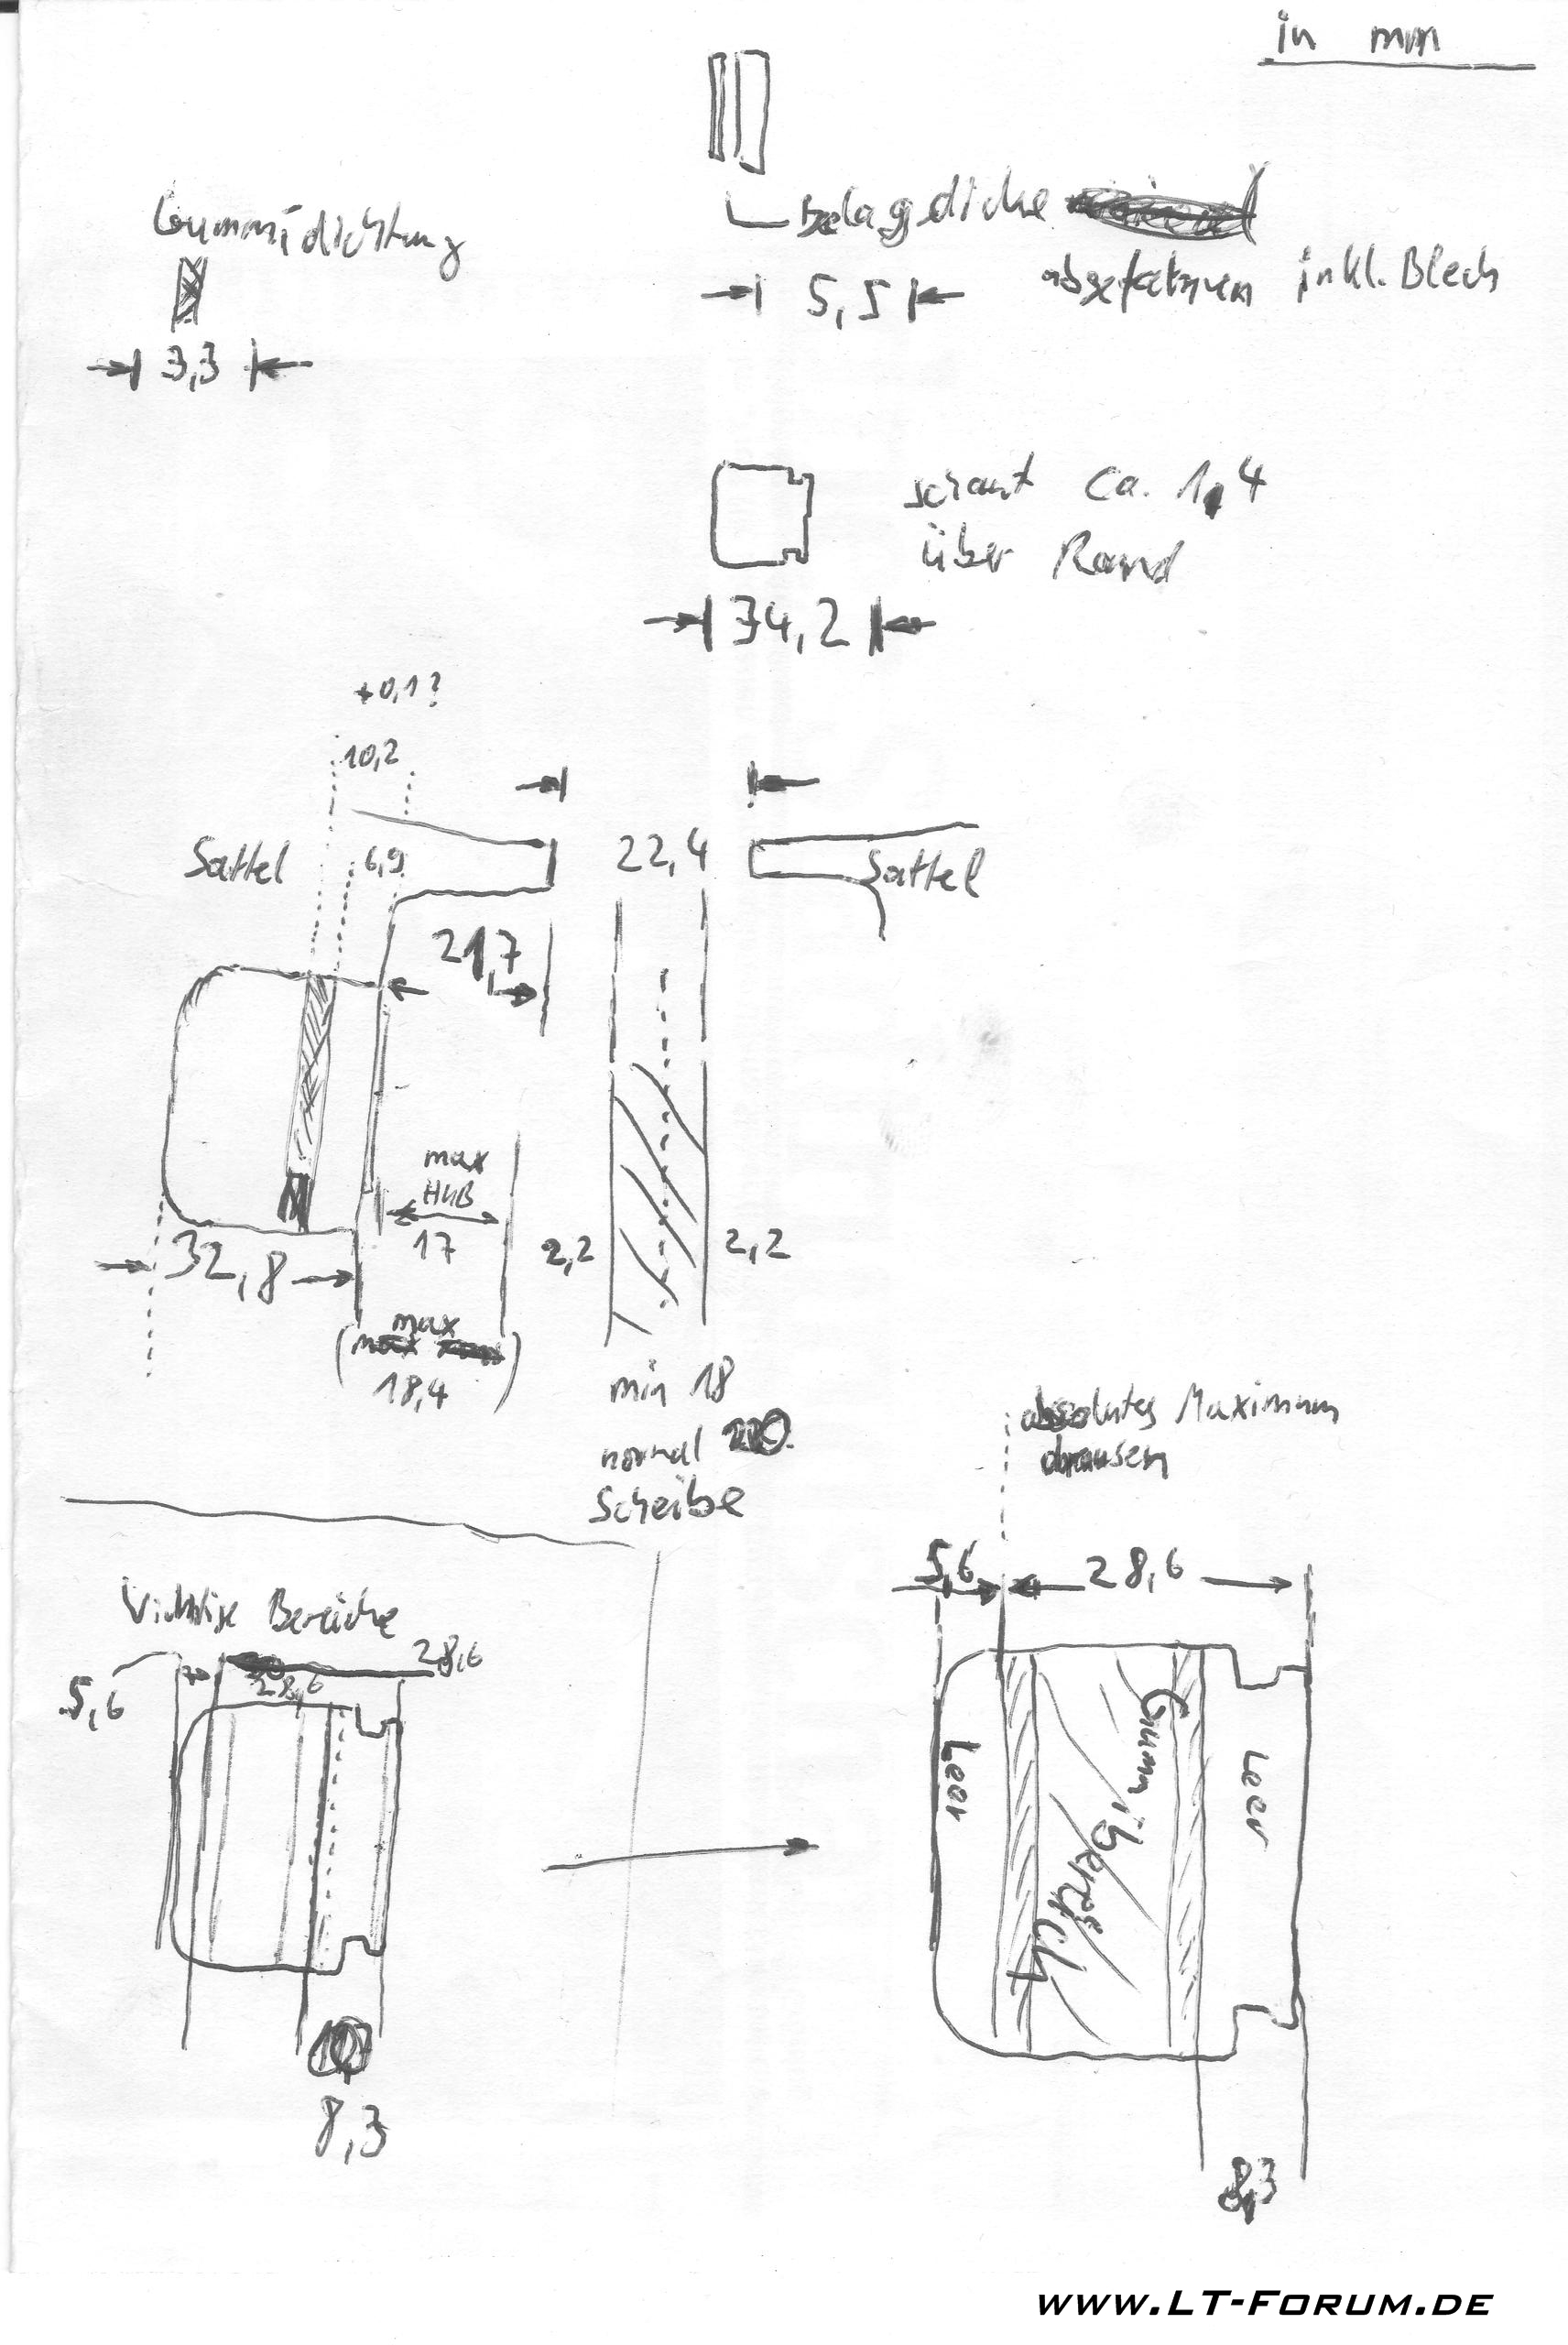 in mm
Gummidichtung
3,3
Belagdicke
abgefahren inkl. Blech
5,5
schaut ca. 1,4
über Rand
34,2
+0,1?
10,2
Sattel
6,9
22,4
Sattel
21,7
max
HUB
17
2,2
2,2
32,8
(max
18,4)
min 18
normal
Scheibe
absolutes Maximum
drausen
5,6
28,6
Wichtige Bereiche
28,6
5,6
28,6
Leer
Gummibereich
Leer
8,3
8,3
www.LT-Forum.de